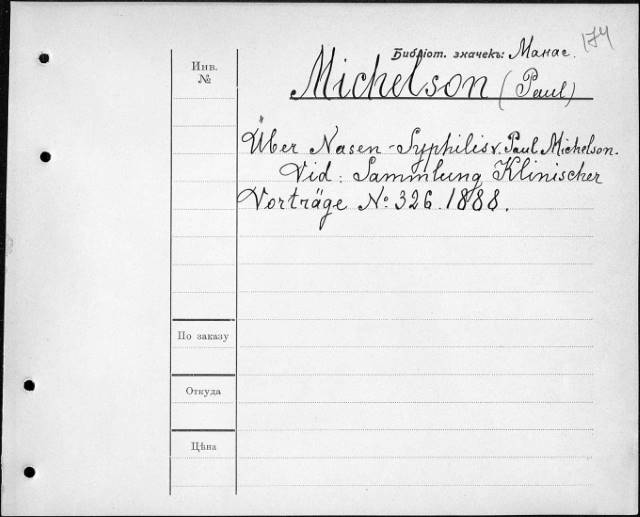 174
Библіот. значекъ: Манас.
Инв.
№
Michelson (Paul)
Über Nasen-Syphilis v. Paul Michelson.
Vid: Sammlung Klinischer
Vorträge No. 326. 1888.
По заказу
Откуда
Цѣна